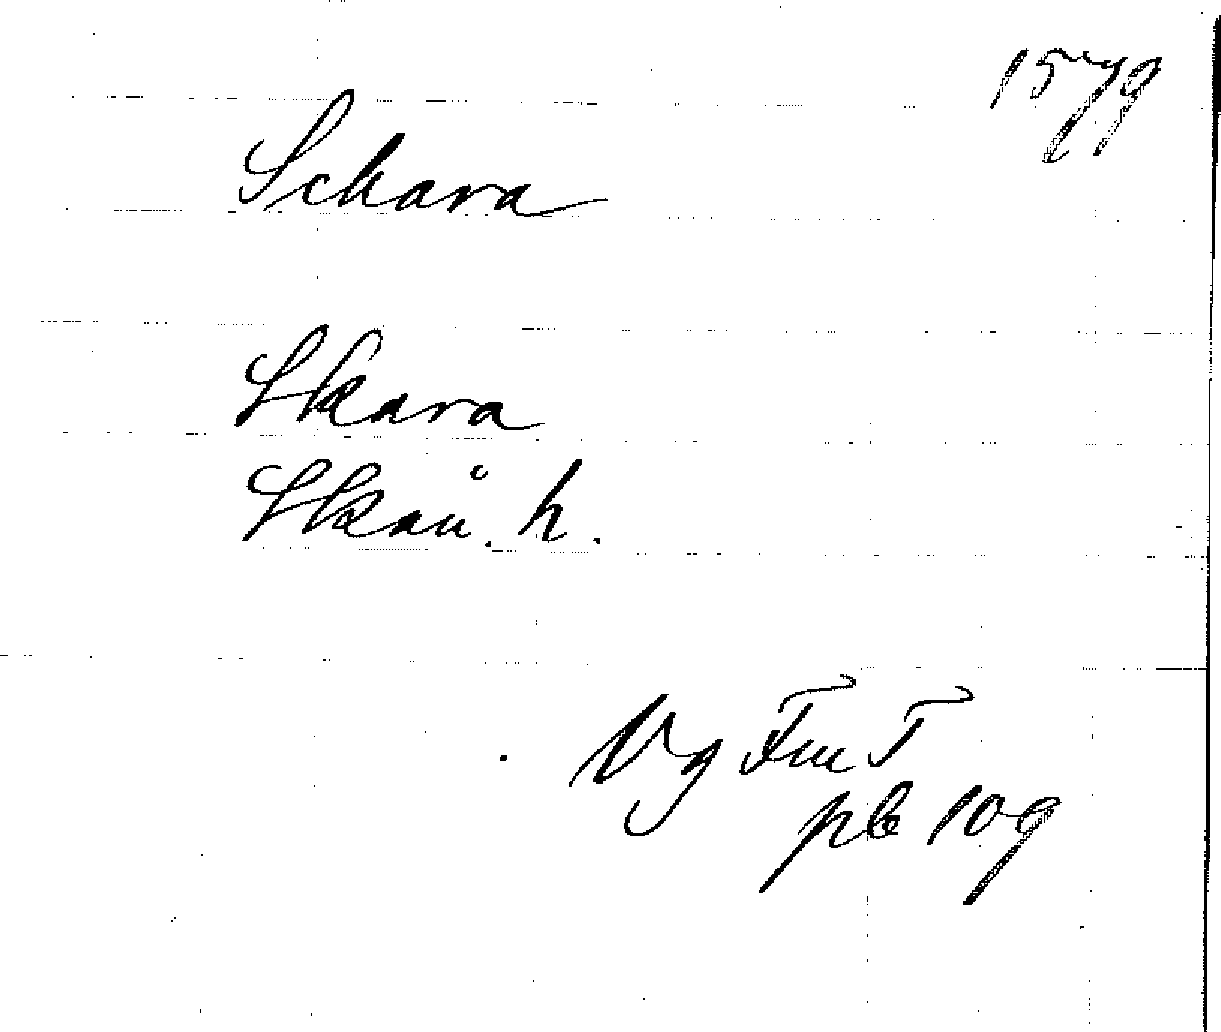 1579
Sckara
Skara
Skån. h.
Vg Fm T
pb 109